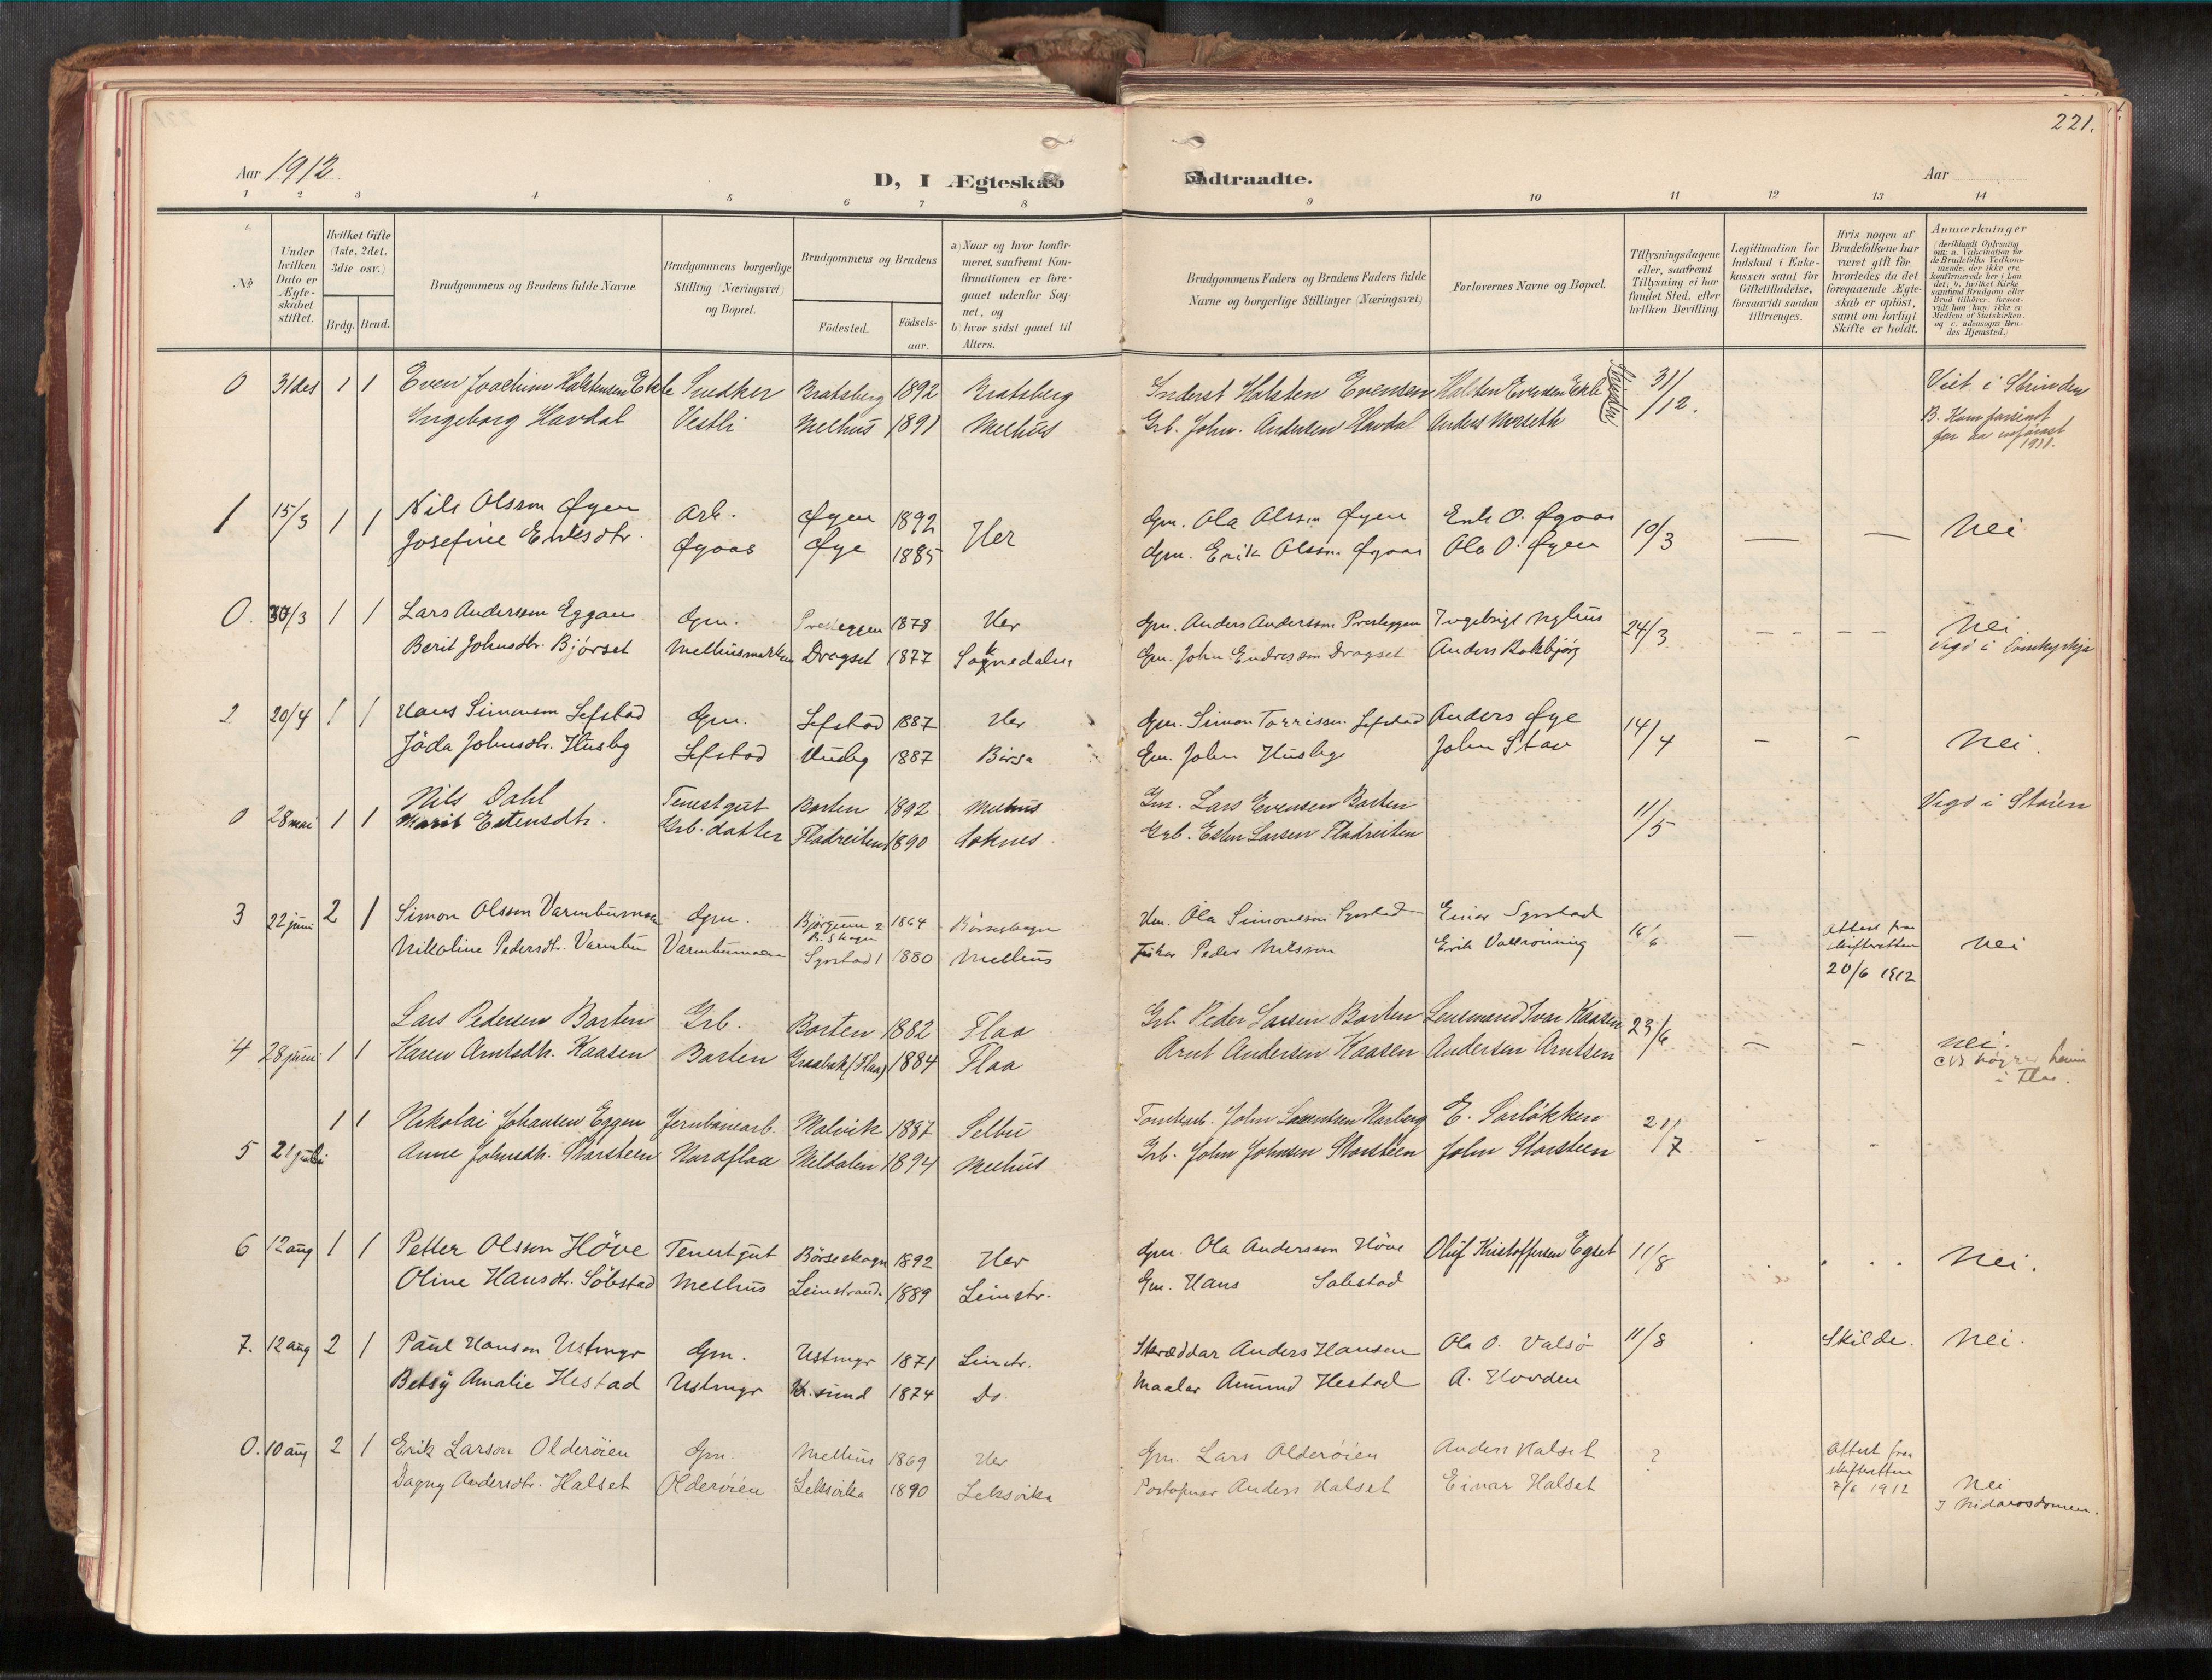 221.
Aar 1912. D, I Ægteskab Indtraadte. Aar
1 2 3 4 5 6 7 8 9 10 11 12 13 14
No
Under hvilken Dato er Ægteskabet stiftet.
Hvilket Gifte (1ste, 2det, 3die osv.)
Brdg. Brud.
Brudgommens og Brudens fulde Navne.
Brudgommens borgerlige Stilling (Næringsvei) og Bopæl.
Brudgommens og Brudens
Fødested. Fødselsaar.
a) Naar og hvor konfirmeret, saafremt Konfirmationen er foregaaet udenfor Sognet, og
b) hvor sidst gaaet til Alters.
Brudgommens Faders og Brudens Faders fulde Navne og borgerlige Stillinger (Næringsvei).
Forlovernes Navne og Bopæl.
Tillysningsdagene eller, saafremt Tillysning ei har fundet Sted, efter hvilken Bevilling.
Legitimation for Indskud i Enkekassen samt for Giftetilladelse, forsaavidt saadan tiltrænges.
Hvis nogen af Brudefolkene har været gift før hvorledes da det foregaaende Ægteskab er opløst, samt om lovligt Skifte er holdt.
Anmerkninger
0 31 des 1 1 Even Joachim Halstensen Ekle Snedker Bratsberg 1892 Bratsberg Inderst Halsten Evensen Halsten Evensen Ekle 31/12. Viet i Strinden
Ingeborg Havdal Vestli Melhus 1891 Melhus Grb. John Andersen Havdal Anders
1911.
1 15/3 1 1 Nils Olsson Øyen Arb. Øyen 1892 Her Gm. Ola Olsson Øyen Erik O. Øyaas 10/3 — — Nei
Josefine Eriksdtr. Øyaas Øye 1885 Gm. Erik Olsson Øyaas Ola O. Øyen
0. 30/3 1 1 Lars Andersson Eggan Gm. Presteggen 1878 Her Gm. Anders Andersson Presteggen Ingebrigt Nyhus 24/3 – – – – Nei
Berit Johnsdtr. Bjørset Melhusmarken Dragset 1877 Soknedalen Gm. John Endresson Dragset Anders Rokbjørg Vigd i Domkyrkja
2 20/4 1 1 Hans Simonson Lefstad Gm. Lefstad 1887 Her Gm. Simon Torrisson Lefstad Anders Øye 14/4 – – Nei.
Jöda Johnsdtr. Husby Lefstad Husby 1887 Börsa Gm. John Husby John Stav
0 28 mai 1 1 Nils Dahl Tenestgut Borten 1892 Melhus Gm. Lars Evensen Borten 11/5 Vigd i Støren
Marit Estensdtr. Grb. datter Fladreiten 1890 Soknes Grb. Esten Larsen Fladreiten
3 22 juni 2 1 Simon Olsson Varmbumoen Gm. Bjørgum 2 B. Skogn 1864 Børseskogn Ola Simonsson Syrstad Einar Syrstad 16/6 – Attest fraa skifteretten 20/6 1912 Nei
Nikoline Pedersdt. Varmbu Varmbumoen Syrstad 1 1880 Melhus Fiskar Peder Nilsson Erik Vollrönning
4 28 juni 1 1 Lars Pedersen Borten Grb. Borten 1882 Flaa Grb. Peder Larsen Borten Lensmand Ivar Kaasen 23/6 – – Nei.
Karen Arntsdtr. Kaasen Borten Graabak (Flaa) 1884 Flaa Arnt Andersen Kaasen Andersen Arntsen i Flaa.
5 21 juli 1 1 Nikolai Johansen Eggen Jernbanearb. Malvik 1887 Selbu E. Sørløkken 21/7 – –
Anne Johnsdtr. Storsteen Nordflaa Meldalen 1894 Melhus Grb. John Johnsen Storsteen John Storsteen
6 12 aug 1 1 Petter Olsson Höve Tenestgut Börseskogn 1892 Her Gm. Ola Andersson Höve Oluf Kristoffersen Egset 11/8 Nei.
Oline Hansdtr. Söbstad Melhus Leinstrand 1889 Leinstr. Gm. Hans Söbstad
7. 12 aug 2 1 Paul Hanson Ustmyr Gm. Ustmyr 1871 Leinstr. Skræddar Anders Hansen Ola O. Valsö 11/8 Skilde. Nei.
Betsy Amalie Hestad Ustmyr Kr. sund 1874 Do. Maalar Amund Hestad A. Hovden
0. 10 aug 2 1 Erik Larson Olderöien Gm. Melhus 1869 Her Gm. Lars Olderöien Anders Halset ? Attest fraa skifteretten 7/6 1912 Nei
Dagny Andersdtr. Halset Olderöien Leksvika 1890 Leksvika Anders Halset Einar Halset I Nidarosdomen.